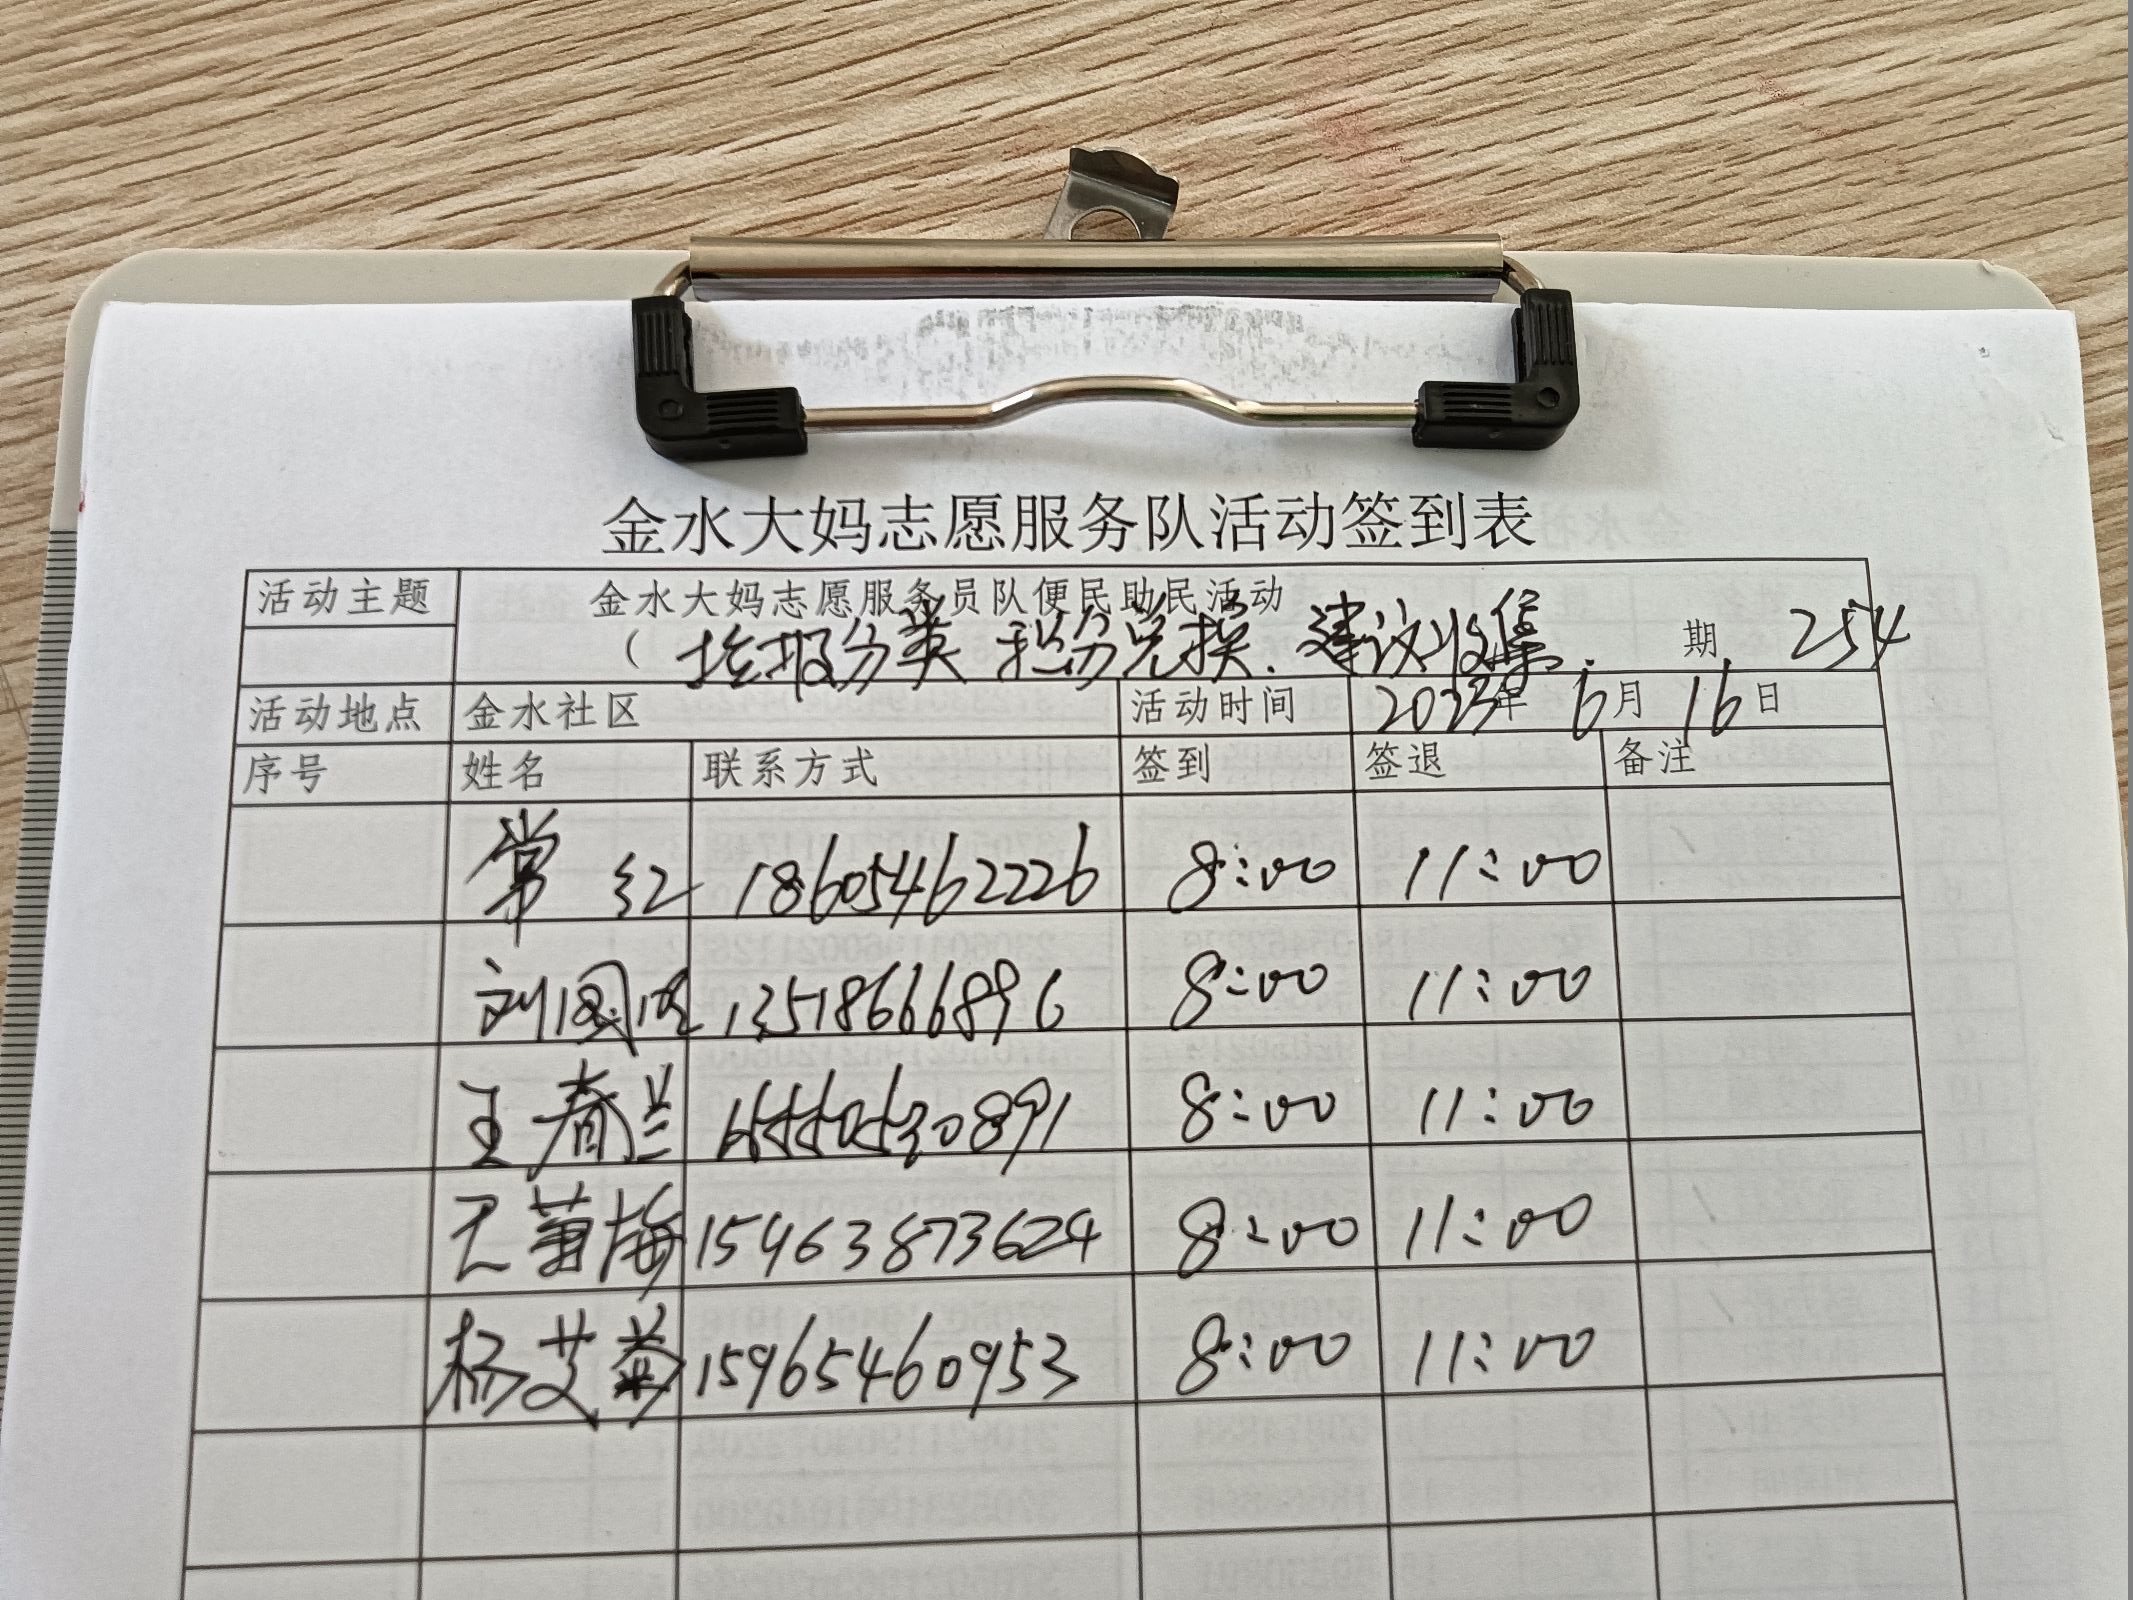 金水大妈志愿服务队活动签到表
活动主题 金水大妈志愿服务员队便民助民活动
（垃圾分类 积分兑换.建议收集. 期 254
活动地点 金水社区 活动时间 2023年 6月 16日
序号 姓名 联系方式 签到 签退 备注
常红 18605462226 8:00 11:00
刘国 13518666896 8:00 11:00
王春兰 8:00 11:00
王董梅 15963873624 8:00 11:00
杨艾菊 15965460953 8:00 11:00